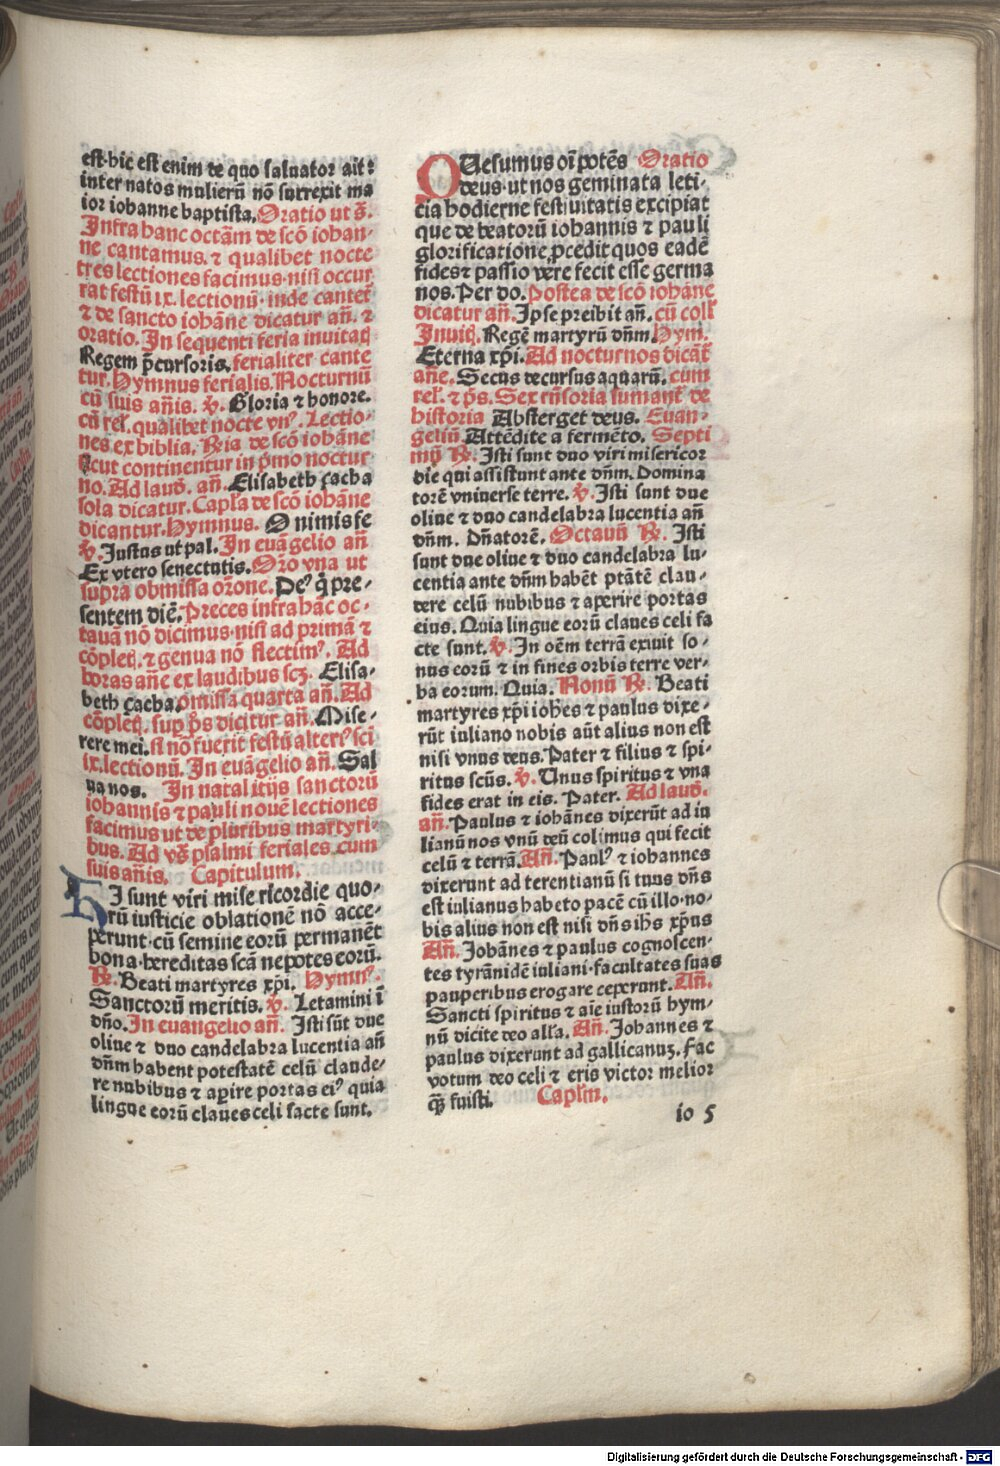 est·hic est enim de quo saluator ait:
inter natos mulierū nō surrexit ma
ior iohanne baptista. Oratio ut s̄.
Infra hanc octāṁ de scō iohan-
ne cantamus. ⁊ qualibet nocte
tres lectiones facimus·nisi occur
rat festū ix. lectionū·inde cantet᷑
⁊ de sancto iohāne dicatur añ. ⁊
oratio. In sequenti feria inuitaꝗ
Regem p̄cursoris. ferialiter cante
tur. Hymnus ferialis. Nocturnū
cū suis añis. ℣. Gloria ⁊ honore.
cū rel̓. qualibet nocte vnꝰ. Lectio-
nes ex biblia. R̄ia de scō iohāne
sicut continentur in p̄mo noctur
no. Ad laud̓. añ. Elisabeth zacha
sola dicatur. Capl̓a de scō iohāne
dicantur. Hymnus. O nimis fe
℣. Iustus ut pal. In euāgelio añ
Ex vtero senectutis. Orō vna ut
supra obmissa orōne. Deꝰ q̄ pre-
sentem diē. Preces infra hāc oc-
tauā nō dicimus·nisi ad primā ⁊
cōpleꝗ. ⁊ genua nō flectimꝰ. Ad
horas añe ex laudibus scꝫ. Elisa-
beth zacha. omissa quarta añ. Ad
cōpleꝗ. sup p̄s dicitur añ. Mise-
rere mei. si nō fuerit festū alteriꝰ sci
ix. lectionū. In euāgelio añ. Sal
ua nos. In natalitijs sanctorū
iohannis ⁊ pauli nouē lectiones
facimus ut de pluribus martyri-
bus. Ad vs̄ psalmi feriales cum
suis añis. Capitulum.
HI sunt viri mise ricordie quo-
rū iusticie oblationē nō acce-
perunt·cū semine eorū permanēt
bona·hereditas scā nepotes eorū.
℟. Beati martyres xp̄i. Hymnꝰ.
Sanctorū meritis. ℣. Letamini ī
dño. In euangelio añ. Isti sūt due
oliue ⁊ duo candelabra lucentia añ
dñm habent potestatē celū claude-
re nubibus ⁊ apire portas eiꝰ quia
lingue eorū claues celi facte sunt.
QUesumus oī potēs Oratio
deus·ut nos geminata leti-
cia hodierne festiuitatis excipiat
que de beatorū iohannis ⁊ pauli
glorificatione ꝓcedit quos eadē
fides ⁊ passio vere fecit esse germa
nos. Per do. Postea de scō iohāne
dicatur añ. Ipse preibit añ. cū coll̓
Inuiꝗ. Regē martyrū dñm. Hym.
Eterna xp̄i. Ad nocturnos dicāt᷑
añe. Secus decursus aquarū. cum
rel̓. ⁊ p̄s. Sex r̄nsoria sumant᷑ de
historia Absterget deus. Euan-
geliū. Attēdite a fermēto. Septi
mū ℟. Isti sunt duo viri misericor
die qui assistunt ante dñm. Domina
torē vniuerse terre. ℣. Isti sunt due
oliue ⁊ duo candelabra lucentia añ
dñm. Dñatorē. Octauū ℟. Isti
sunt due oliue ⁊ duo candelabra lu-
centia ante dñm habēt ptātē clau-
dere celū nubibus ⁊ aperire portas
eius. Quia lingue eorū claues celi fa
cte sunt. ℣. In oēm terrā exiuit so-
nus eorū ⁊ in fines orbis terre ver-
ba eorum. Quia. Nonū ℟. Beati
martyres xp̄i iohēs ⁊ paulus dixe-
rūt iuliano nobis aūt alius non est
nisi vnus deus. Pater ⁊ filius ⁊ spi-
ritus scūs. ℣. Unus spiritus ⁊ vna
fides erat in eis. Pater. Ad laud̓.
añ. Paulus ⁊ iohānes dixerūt ad iu
lianū nos vnū deū colimus qui fecit
celū ⁊ terrā. Añ. Paulꝰ ⁊ iohannes
dixerunt ad terentianū si tuus dñs
est iulianus habeto pacē cū illo·no-
bis alius non est nisi dñs ihs xp̄us
Añ. Johānes ⁊ paulus cognoscen-
tes tyrānidē iuliani·facultates suas
pauperibus erogare ceperunt. Añ.
Sancti spiritus ⁊ aīe iustorū hym-
nū dicite deo all̓a. Añ. Johannes ⁊
paulus dixerunt ad gallicanuꝫ. Fac
votum deo celi ⁊ eris victor melior
q̄ꝫ fuisti. Capl̓m.
io 5
Digitalisierung gefördert durch die Deutsche Forschungsgemeinschaft - DFG